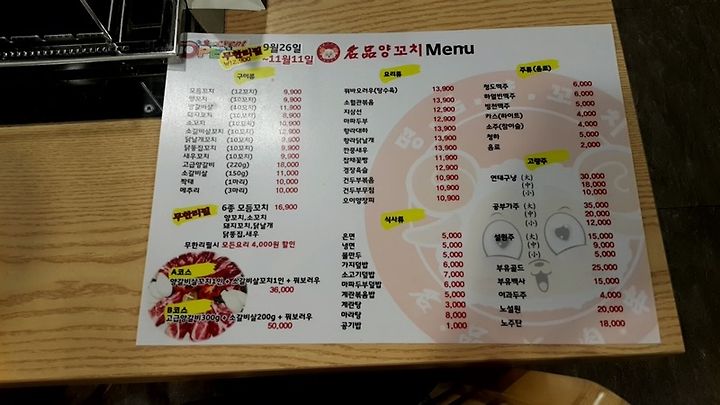 OPEN Event
무한리필
₩12,900
9월26일
~11월11일
名品양꼬치 Menu
구이류
모듬꼬치 (12꼬치) 9,900
양꼬치 (10꼬치) 9,900
양갈비살 (10꼬치) 11,900
돼지꼬치 (10꼬치) 8,900
소꼬치 (10꼬치) 10,900
소갈비살꼬치 (10꼬치) 12,900
닭날개꼬치 (10꼬치) 9,900
닭똥집꼬치 (10꼬치) 9,900
새우꼬치 (10꼬치) 9,900
고급양갈비 (220g) 18,000
소갈비살 (150g) 11,000
짝태 (1마리) 10,000
메추리 (3마리) 10,000
무한리필 6종 모듬꼬치 16,900
양꼬치,소꼬치
돼지꼬치,닭날개
닭똥집,새우
무한리필시 모든요리 4,000원 할인
A코스
양갈비살꼬치1인 + 소갈비살꼬치1인 + 꿔보러우
36,000
B코스
고급양갈비300g + 소갈비살200g + 꿔보러우
50,000
요리류
꿔바오러우(탕수육) 13,900
소힐관볶음 13,900
지삼선 12,900
마파두부 12,900
향라대하 13,900
향라닭날개 13,900
깐풍새우 13,900
잡채꽃빵 13,900
경장육슬 12,900
건두부볶음 10,900
건두부무침 10,900
오이양장피 10,900
식사류
온면 5,000
냉면 5,000
물만두 5,000
가지덮밥 6,000
소고기덮밥 7,000
마파두부덮밥 6,000
계란볶음밥 5,000
계란탕 3,000
마라탕 8,000
공기밥 1,000
주류(음료)
칭도맥주 6,000
하얼빈맥주 6,000
빙천맥주 5,000
카스(하이트) 4,000
소주(참이슬) 4,000
청하 5,000
음료 2,000
고량주
연태구냥 (大) 30,000
(中) 18,000
(小) 10,000
공부가주 (大) 35,000
(中) 20,000
(小) 12,000
설원주 (大) 15,000
(中) 9,000
(小) 5,000
부유골드 25,000
부유백사 15,000
이과두주 4,000
노설원 20,000
노주탄 18,000